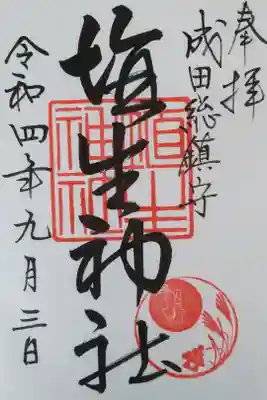 奉拝
成田総鎮守
埴生神社
令和四年九月三日